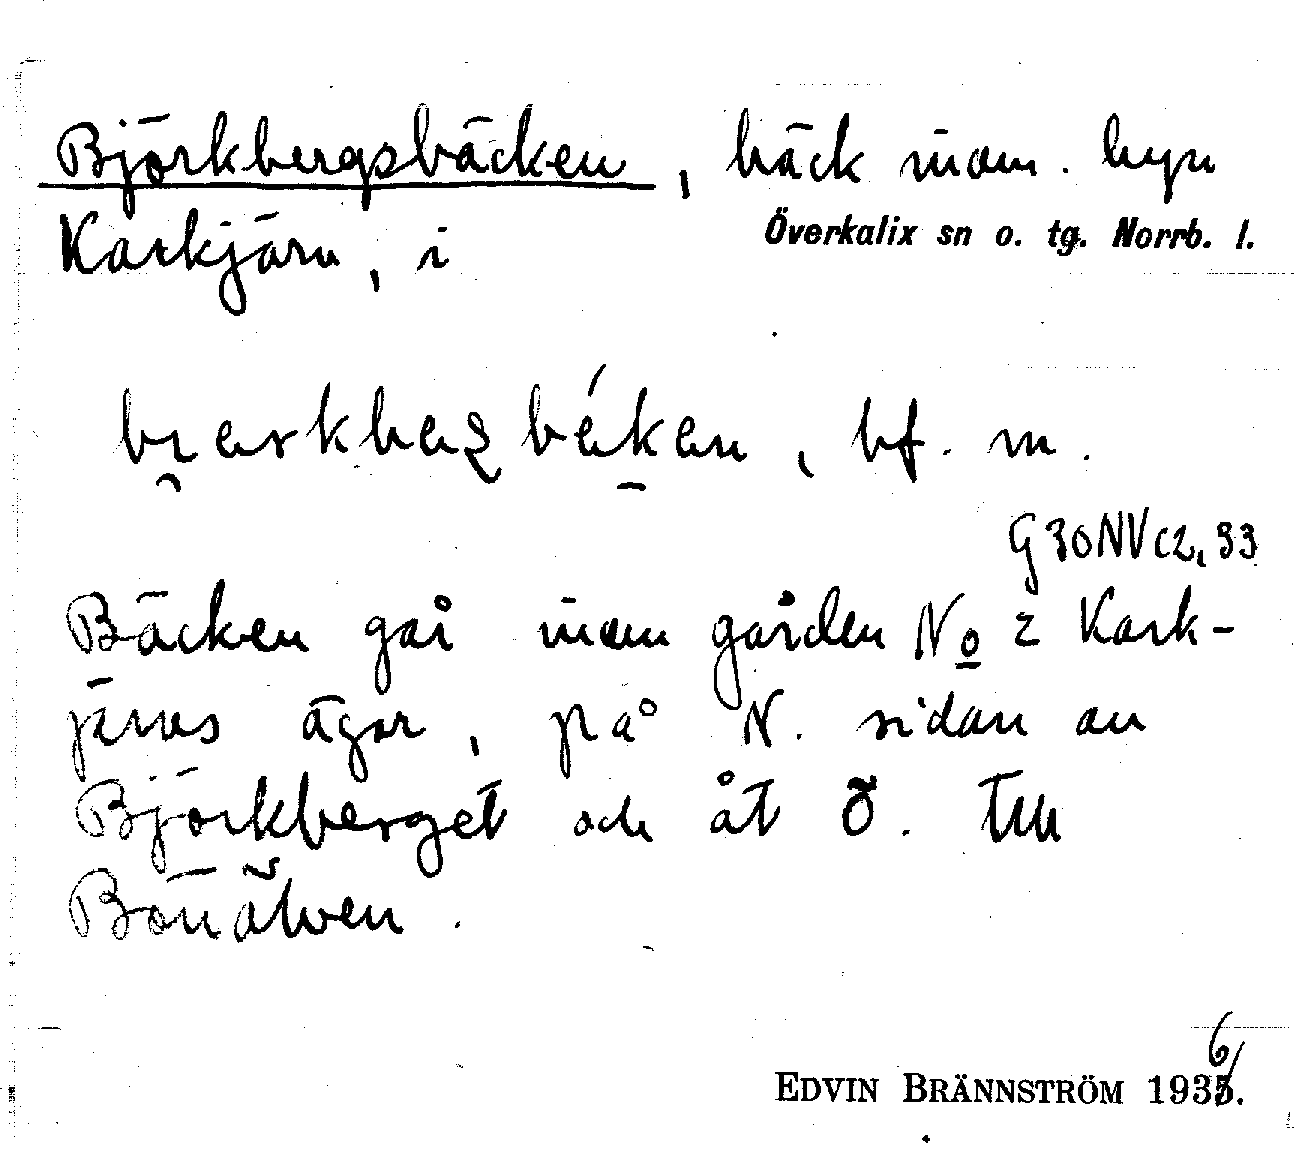 Björkbergsbäcken, bäck inom byn
Karkjärv, i Överkalix sn o. tg. Norrb. l.
bf. m.
G30NVc2, 33
Bäcken går inom gården No 2 Kark-
järvs ägor, på N. sidan av
Björkberget och åt Ö. till
Bönälven.
EDVIN BRÄNNSTRÖM 1936.